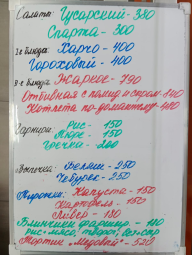 Салаты: Гусарский - 350
Спарта - 300
1-е блюда: Харчо - 400
Гороховый - 400
2-е блюда: Жаркое - 790
Отбивная с помид и сыром - 840
Котлета по-домашнему -
Гарниры: Рис - 150
Пюре - 150
Гречка - 200
Выпечка: Беляш - 250
Чебурек - 250
Пирожки: Капуста - 150
Картофель - 150
Ливер - 180
Блинчики фаршир. -
рис-мясо, творог,
Тортик "Медовый" - 520